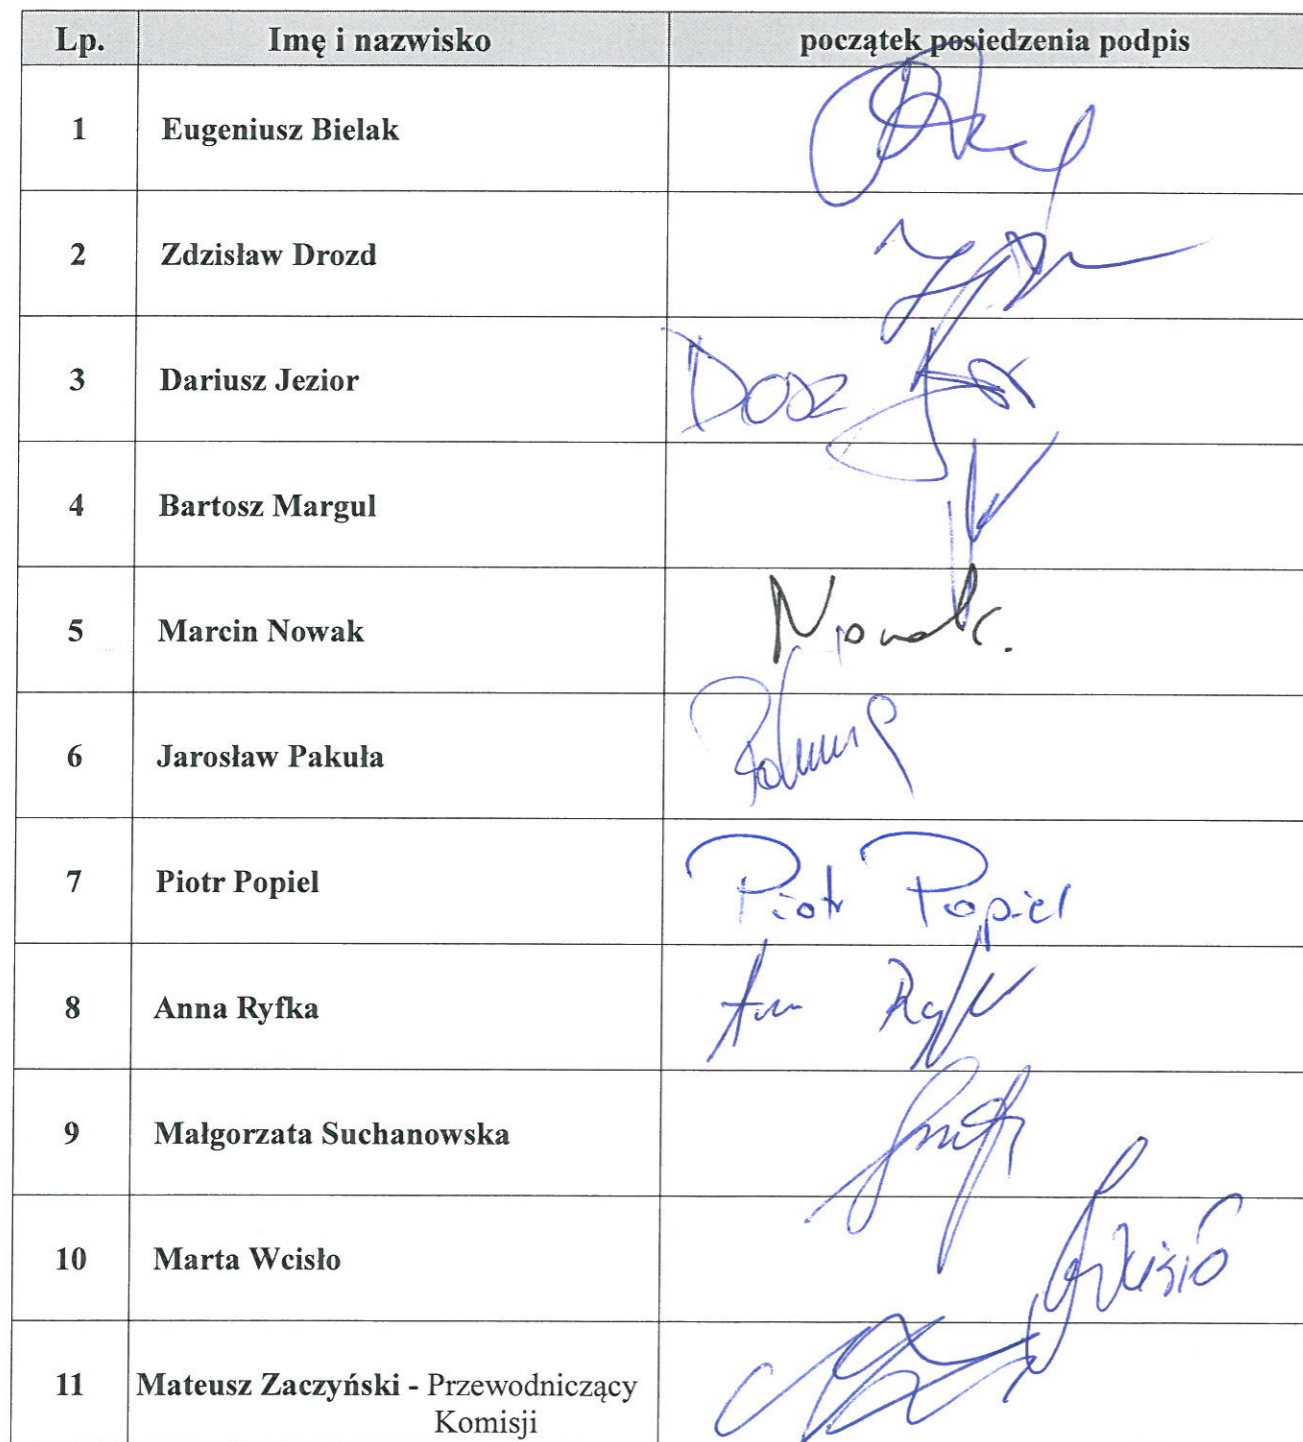 Lp. Imę i nazwisko początek posiedzenia podpis
1 Eugeniusz Bielak
2 Zdzisław Drozd
3 Dariusz Jezior
4 Bartosz Margul
5 Marcin Nowak Nowak.
6 Jarosław Pakuła
7 Piotr Popiel Piotr Popiel
8 Anna Ryfka
9 Małgorzata Suchanowska
10 Marta Wcisło Wcisło
11 Mateusz Zaczyński - Przewodniczący
Komisji